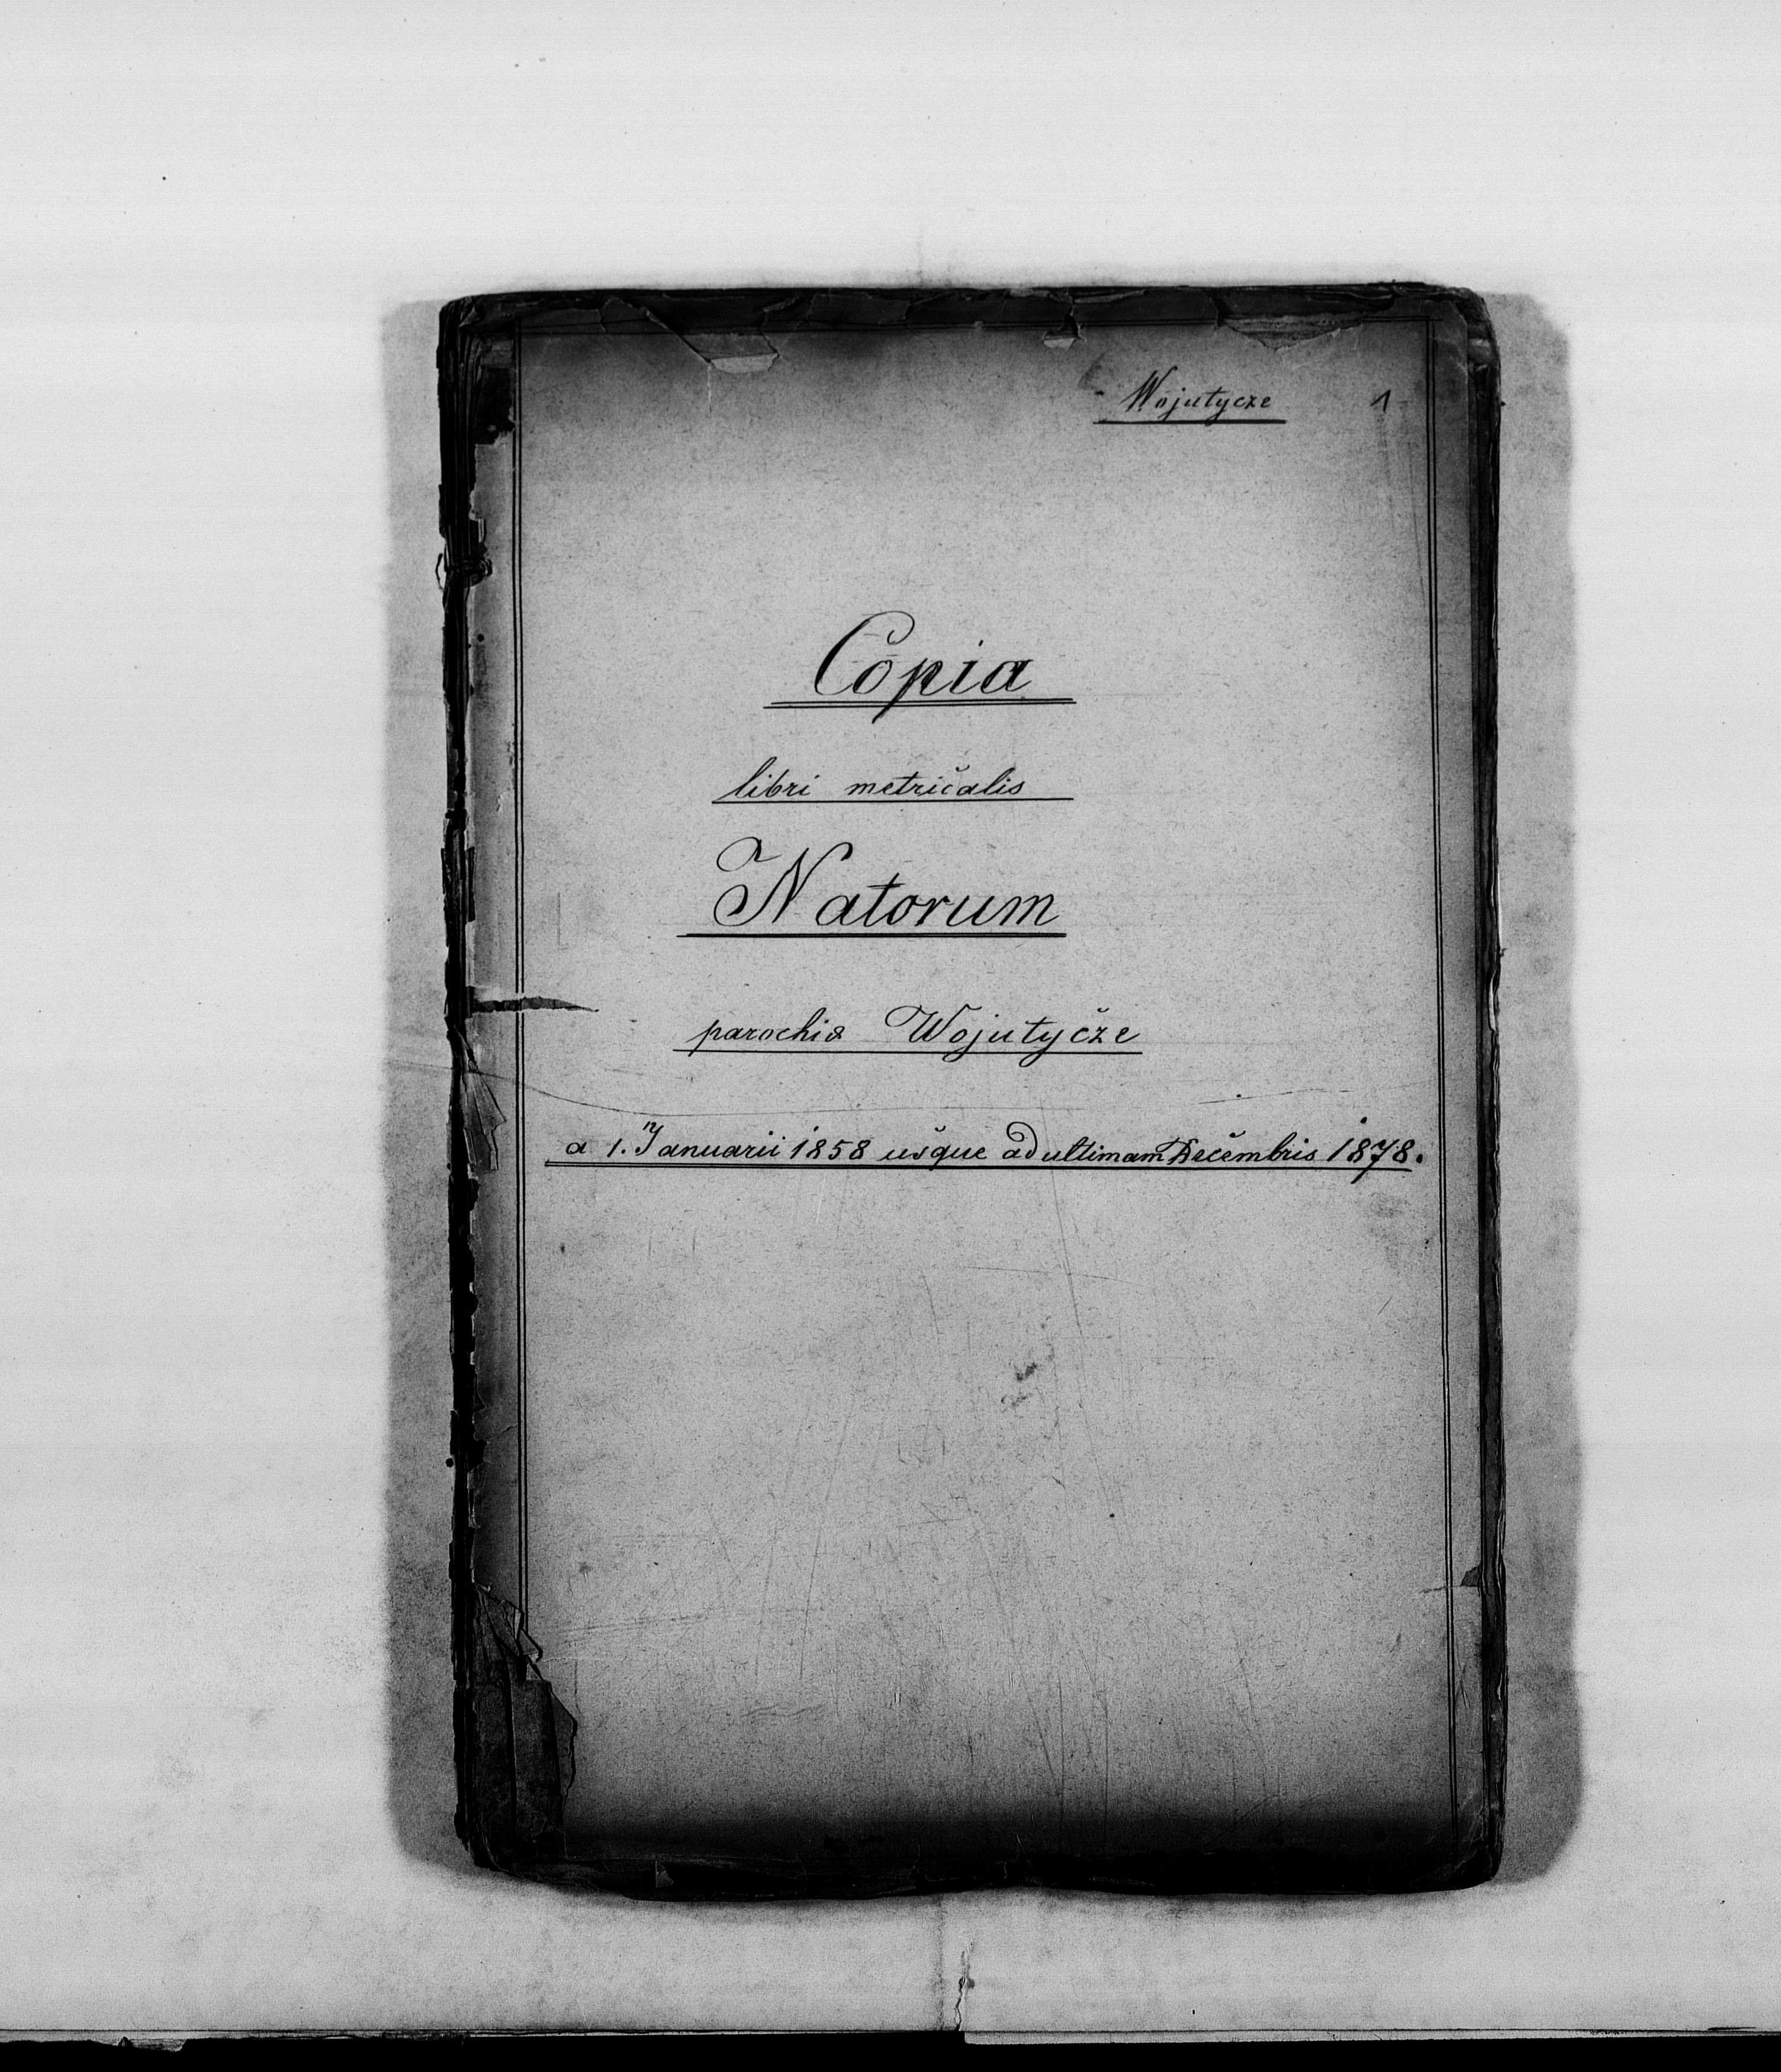 Wojutycze 1
Copia
libri metričalis
Natorum
parochiæ Wojutyčze
a 1. Januarii 1858 usque ad ultimam Dečembris 1878.